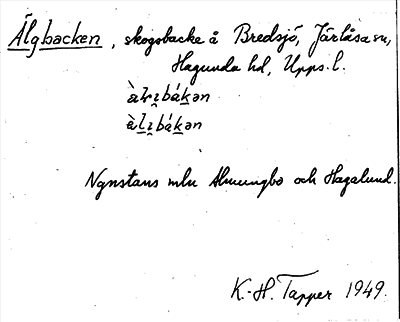 Älgbacken, skogsbacke å Bredsjö, Järlåsa sn,
Hagunda hd, Upps. l.
àlɩ̯bákən
Ngnstans mln Almungbo och Hagalund.
K.-H. Tapper 1949.